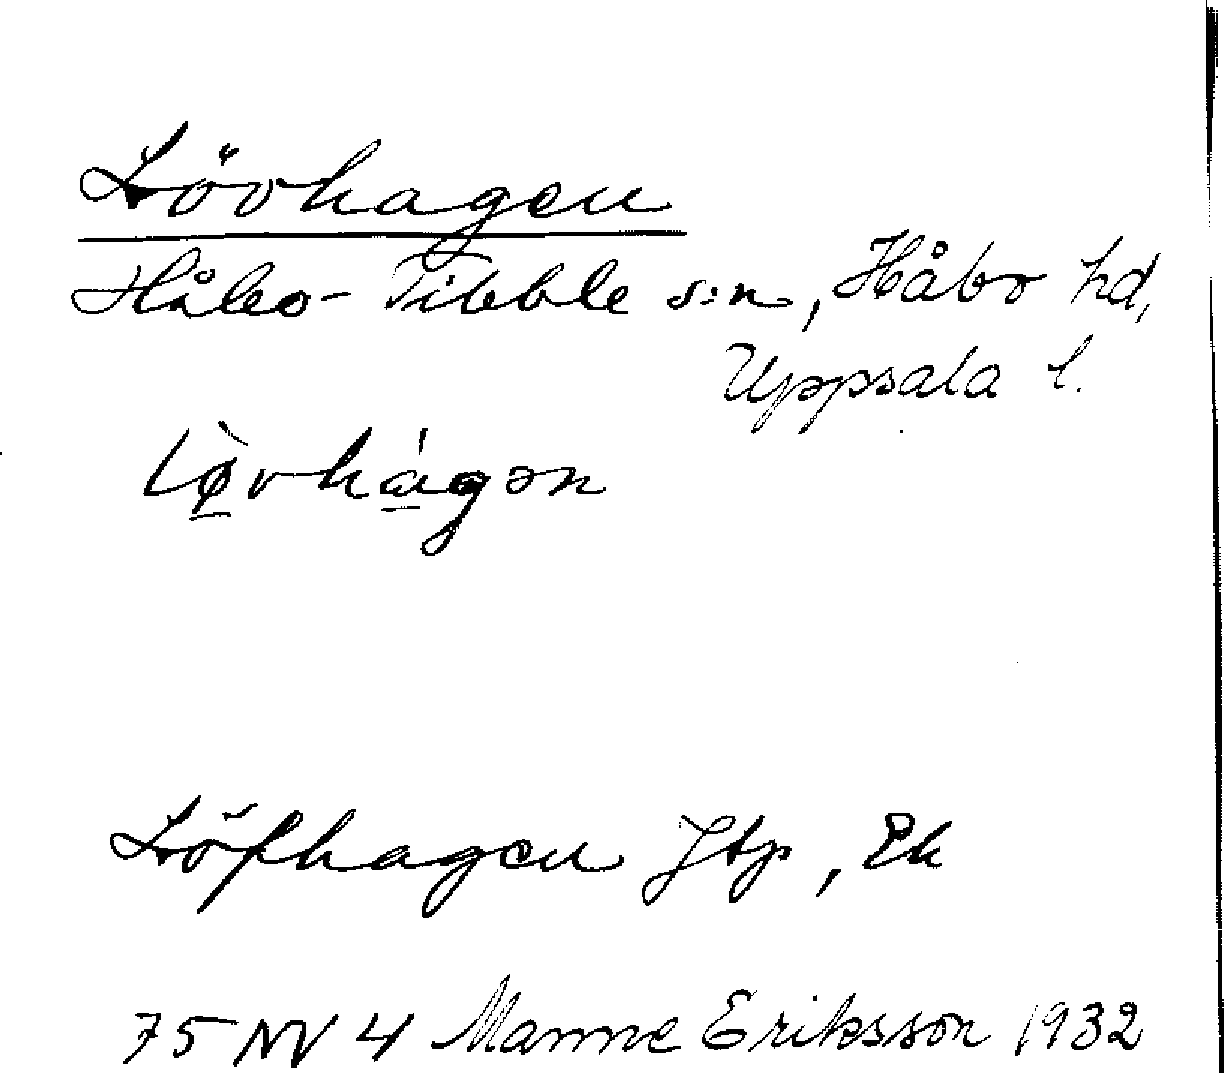 Lövhagen
Håbo-Tibble s:n, Håbo hd,
Uppsala l.
lø̠̀vhá̠gən
Löfhagen Jtp, Ek
75 NV 4 Manne Eriksson 1932